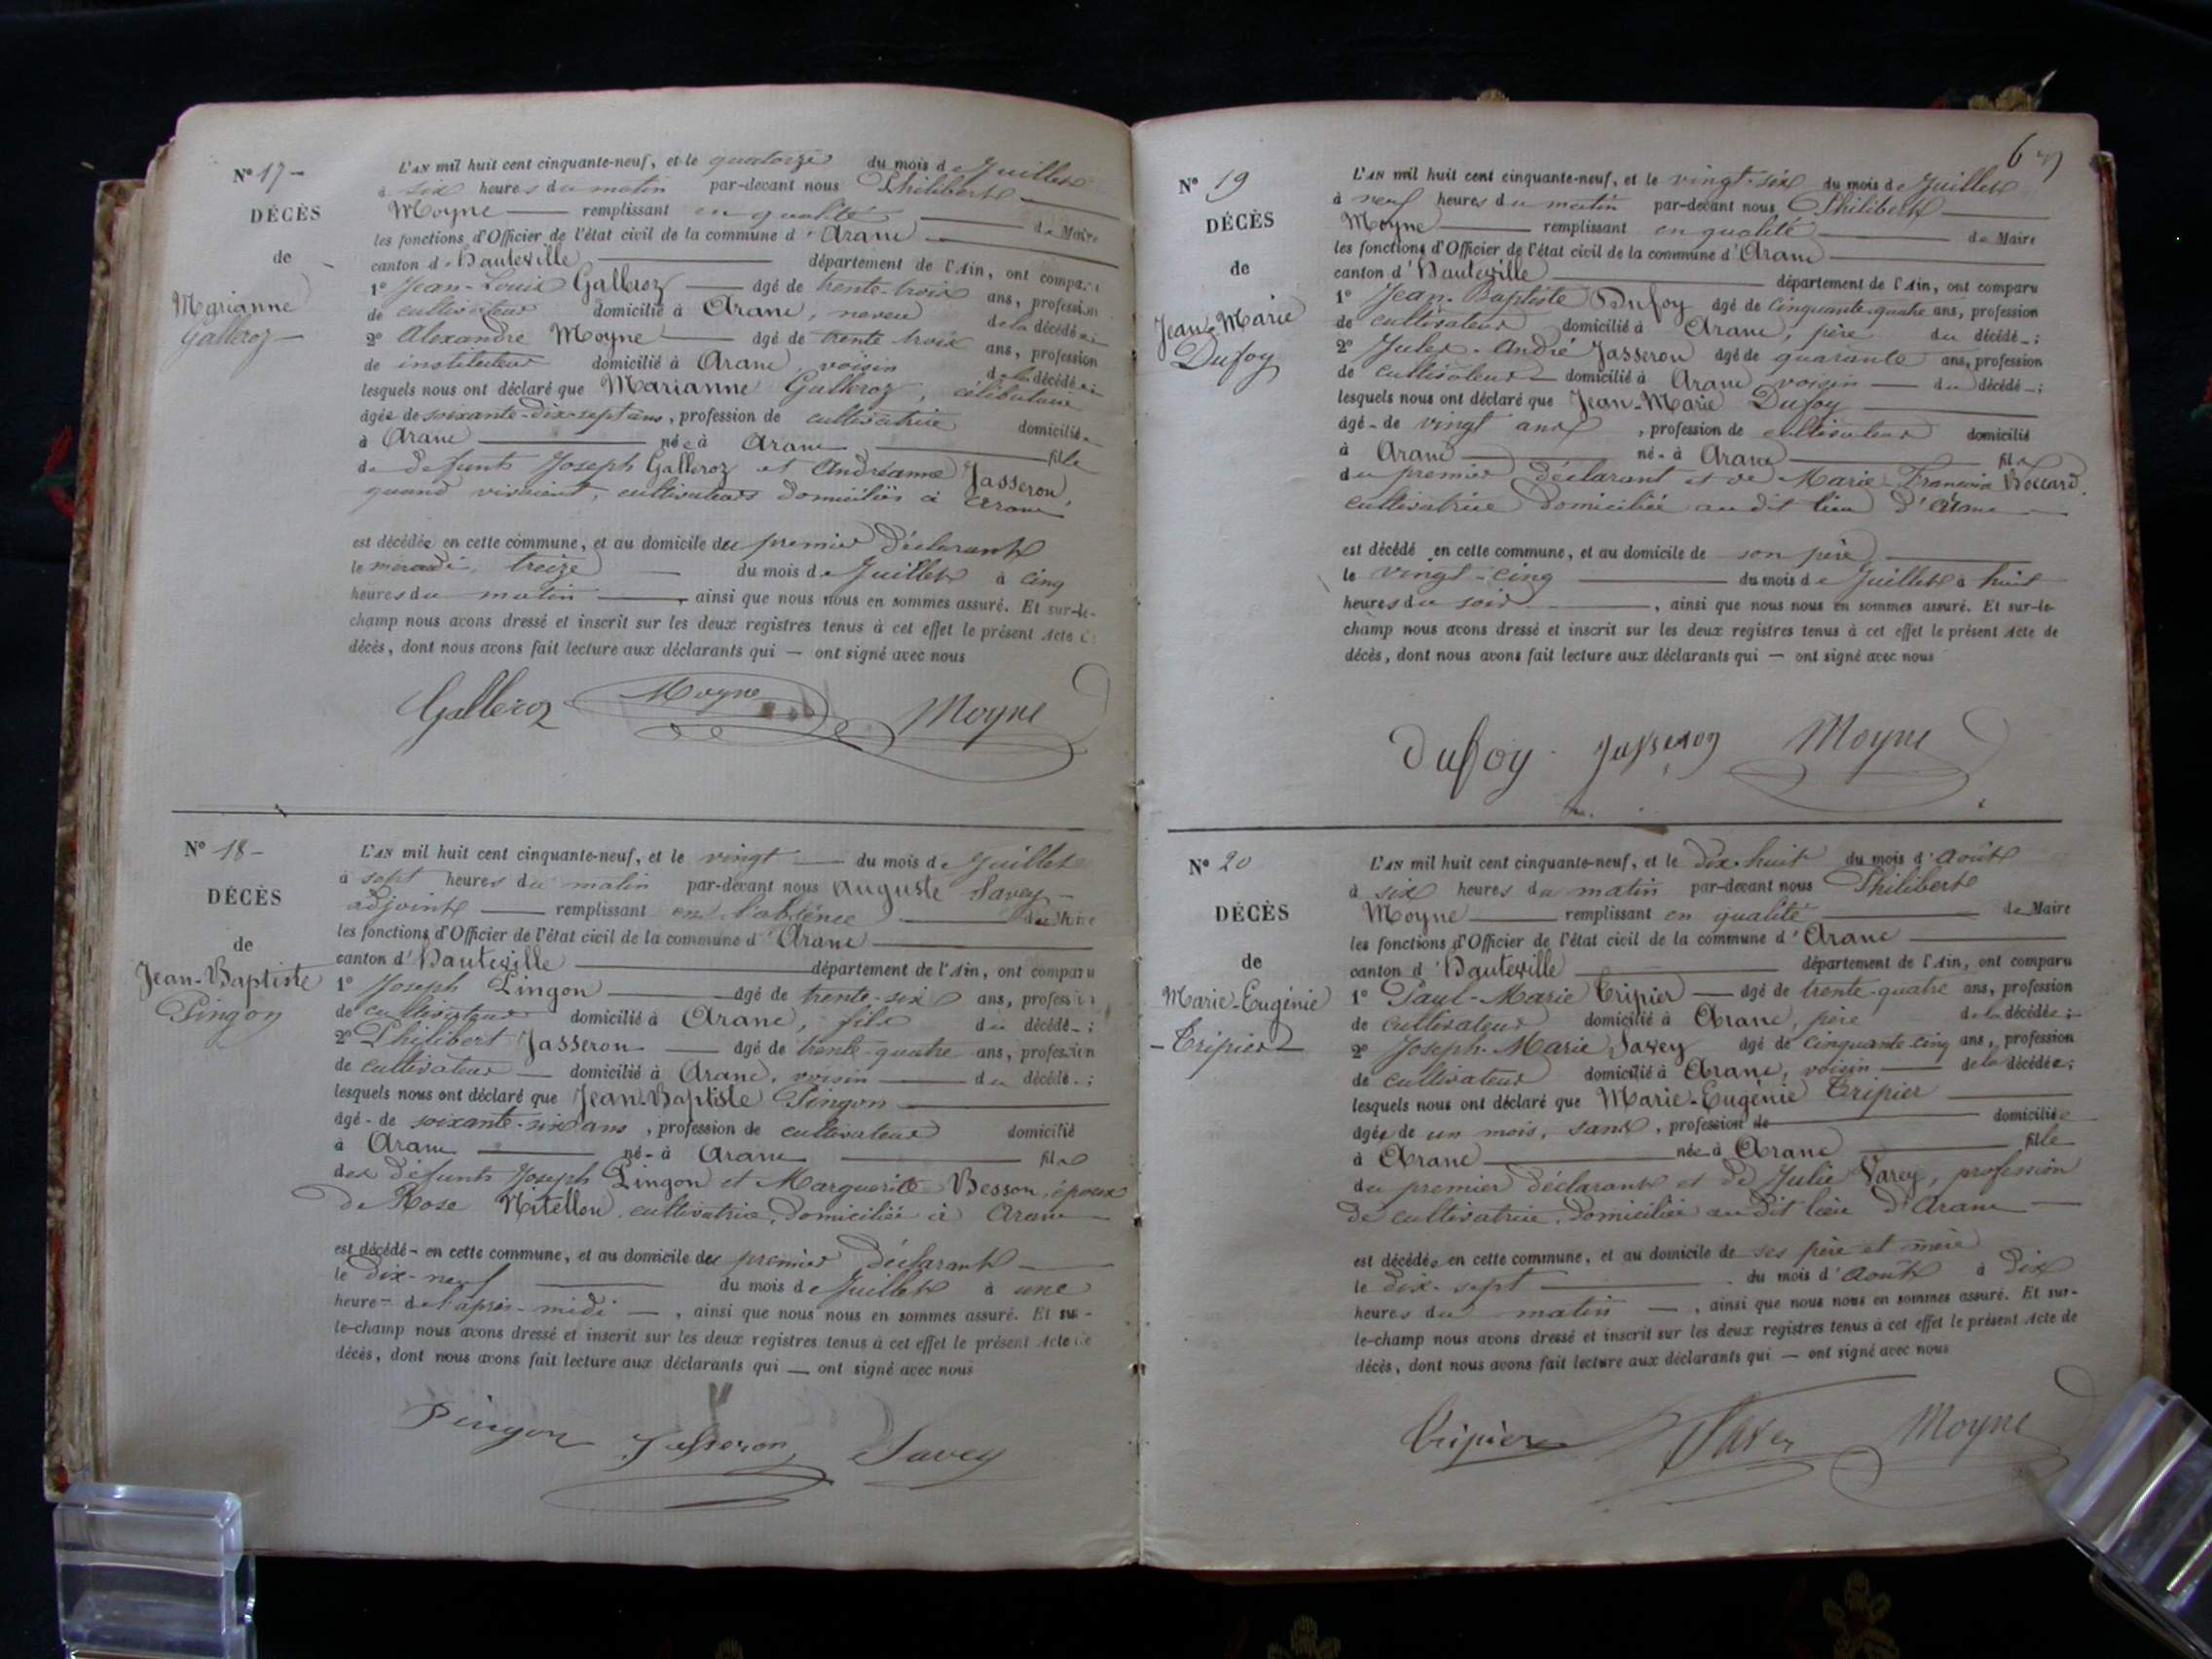 N° 17 -
DÉCÈS
de
Marianne
Galleroz
L'AN mil huit cent cinquante-neuf, et le quatorze du mois de Juillet
à six heures du matin par-devant nous Philibert
Moyne remplissant en qualité de Maire
les fonctions d'Officier de l'état civil de la commune d'Aranc
canton d'Hauteville département de l'Ain, ont comparu
1° Jean-Louis Galleroz âgé de trente-trois ans, profession
de cultivateur domicilié à Aranc, neveu de la décédée;
2° Alexandre Moyne âgé de trente trois ans, profession
de instituteur domicilié à Aranc voisin de la décédée;
lesquels nous ont déclaré que Marianne Galleroz, célibataire
âgée de soixante-dix-sept ans, profession de cultivatrice domiciliée
à Aranc née à Aranc fille
de défunts Joseph Galleroz et Andréanne Jasseron,
quand vivaient, cultivateurs domiciliés à Aranc
est décédée en cette commune, et au domicile du premier déclarant
le mercredi, treize du mois de Juillet à cinq
heures du matin, ainsi que nous nous en sommes assuré. Et sur-le-
champ nous avons dressé et inscrit sur les deux registres tenus à cet effet le présent Acte de
décès, dont nous avons fait lecture aux déclarants qui — ont signé avec nous
Galleroz Moyne Moyne
N° 18 -
DÉCÈS
de
Jean-Baptiste
Pingon
L'AN mil huit cent cinquante-neuf, et le vingt du mois de Juillet
à sept heures du matin par-devant nous Auguste Savey
adjoint remplissant en l'absence du Maire
les fonctions d'Officier de l'état civil de la commune d'Aranc
canton d'Hauteville département de l'Ain, ont comparu
1° Joseph Pingon âgé de trente-six ans, profession
de cultivateur domicilié à Aranc, fils du décédé;
2° Philibert Jasseron âgé de trente-quatre ans, profession
de cultivateur domicilié à Aranc, voisin du décédé;
lesquels nous ont déclaré que Jean-Baptiste Pingon
âgé de soixante-six ans, profession de cultivateur domicilié
à Aranc né à Aranc fils
des défunts Joseph Pingon et Marguerite Besson, époux
de Rose Nitellon, cultivatrice, domiciliée à Aranc
est décédé en cette commune, et au domicile du premier déclarant
le dix-neuf du mois de Juillet à une
heure de l'après-midi, ainsi que nous nous en sommes assuré. Et sur-
le-champ nous avons dressé et inscrit sur les deux registres tenus à cet effet le présent Acte de
décès, dont nous avons fait lecture aux déclarants qui — ont signé avec nous
Pingon Jasseron Savey
N° 19
DÉCÈS
de
Jean-Marie
Dufoy
L'AN mil huit cent cinquante-neuf, et le vingt-six du mois de Juillet
à neuf heures du matin par-devant nous Philibert
Moyne remplissant en qualité de Maire
les fonctions d'Officier de l'état civil de la commune d'Aranc
canton d'Hauteville département de l'Ain, ont comparu
1° Jean-Baptiste Dufoy âgé de cinquante-quatre ans, profession
de cultivateur domicilié à Aranc, père du décédé;
2° Jules-André Jasseron âgé de quarante ans, profession
de cultivateur domicilié à Aranc voisin du décédé;
lesquels nous ont déclaré que Jean-Marie Dufoy
âgé de vingt ans, profession de cultivateur domicilié
à Aranc né à Aranc fils
du premier déclarant et de Marie-Francoise Boccard
cultivatrice domiciliée au dit lieu d'Aranc
est décédé en cette commune, et au domicile de son père
le vingt-cinq du mois de Juillet à huit
heures du soir, ainsi que nous nous en sommes assuré. Et sur-le-
champ nous avons dressé et inscrit sur les deux registres tenus à cet effet le présent Acte de
décès, dont nous avons fait lecture aux déclarants qui — ont signé avec nous
Dufoy Jasseron Moyne
N° 20
DÉCÈS
de
Marie-Eugénie
Tripier
L'AN mil huit cent cinquante-neuf, et le dix-huit du mois d'Août
à six heures du matin par-devant nous Philibert
Moyne remplissant en qualité de Maire
les fonctions d'Officier de l'état civil de la commune d'Aranc
canton d'Hauteville département de l'Ain, ont comparu
1° Paul-Marie Tripier âgé de trente-quatre ans, profession
de cultivateur domicilié à Aranc, père de la décédée;
2° Joseph-Marie Savey âgé de cinquante-cinq ans, profession
de cultivateur domicilié à Aranc, voisin de la décédée;
lesquels nous ont déclaré que Marie-Eugénie Tripier
âgée de un mois, sans, profession de domiciliée
à Aranc née à Aranc fille
du premier déclarant et de Julie Varey, profession
de cultivatrice, domiciliée au dit lieu d'Aranc
est décédée en cette commune, et au domicile de ses père et mère
le dix-sept du mois d'Août à dix
heures du matin, ainsi que nous nous en sommes assuré. Et sur-
le-champ nous avons dressé et inscrit sur les deux registres tenus à cet effet le présent Acte de
décès, dont nous avons fait lecture aux déclarants qui — ont signé avec nous
Tripier Savey Moyne